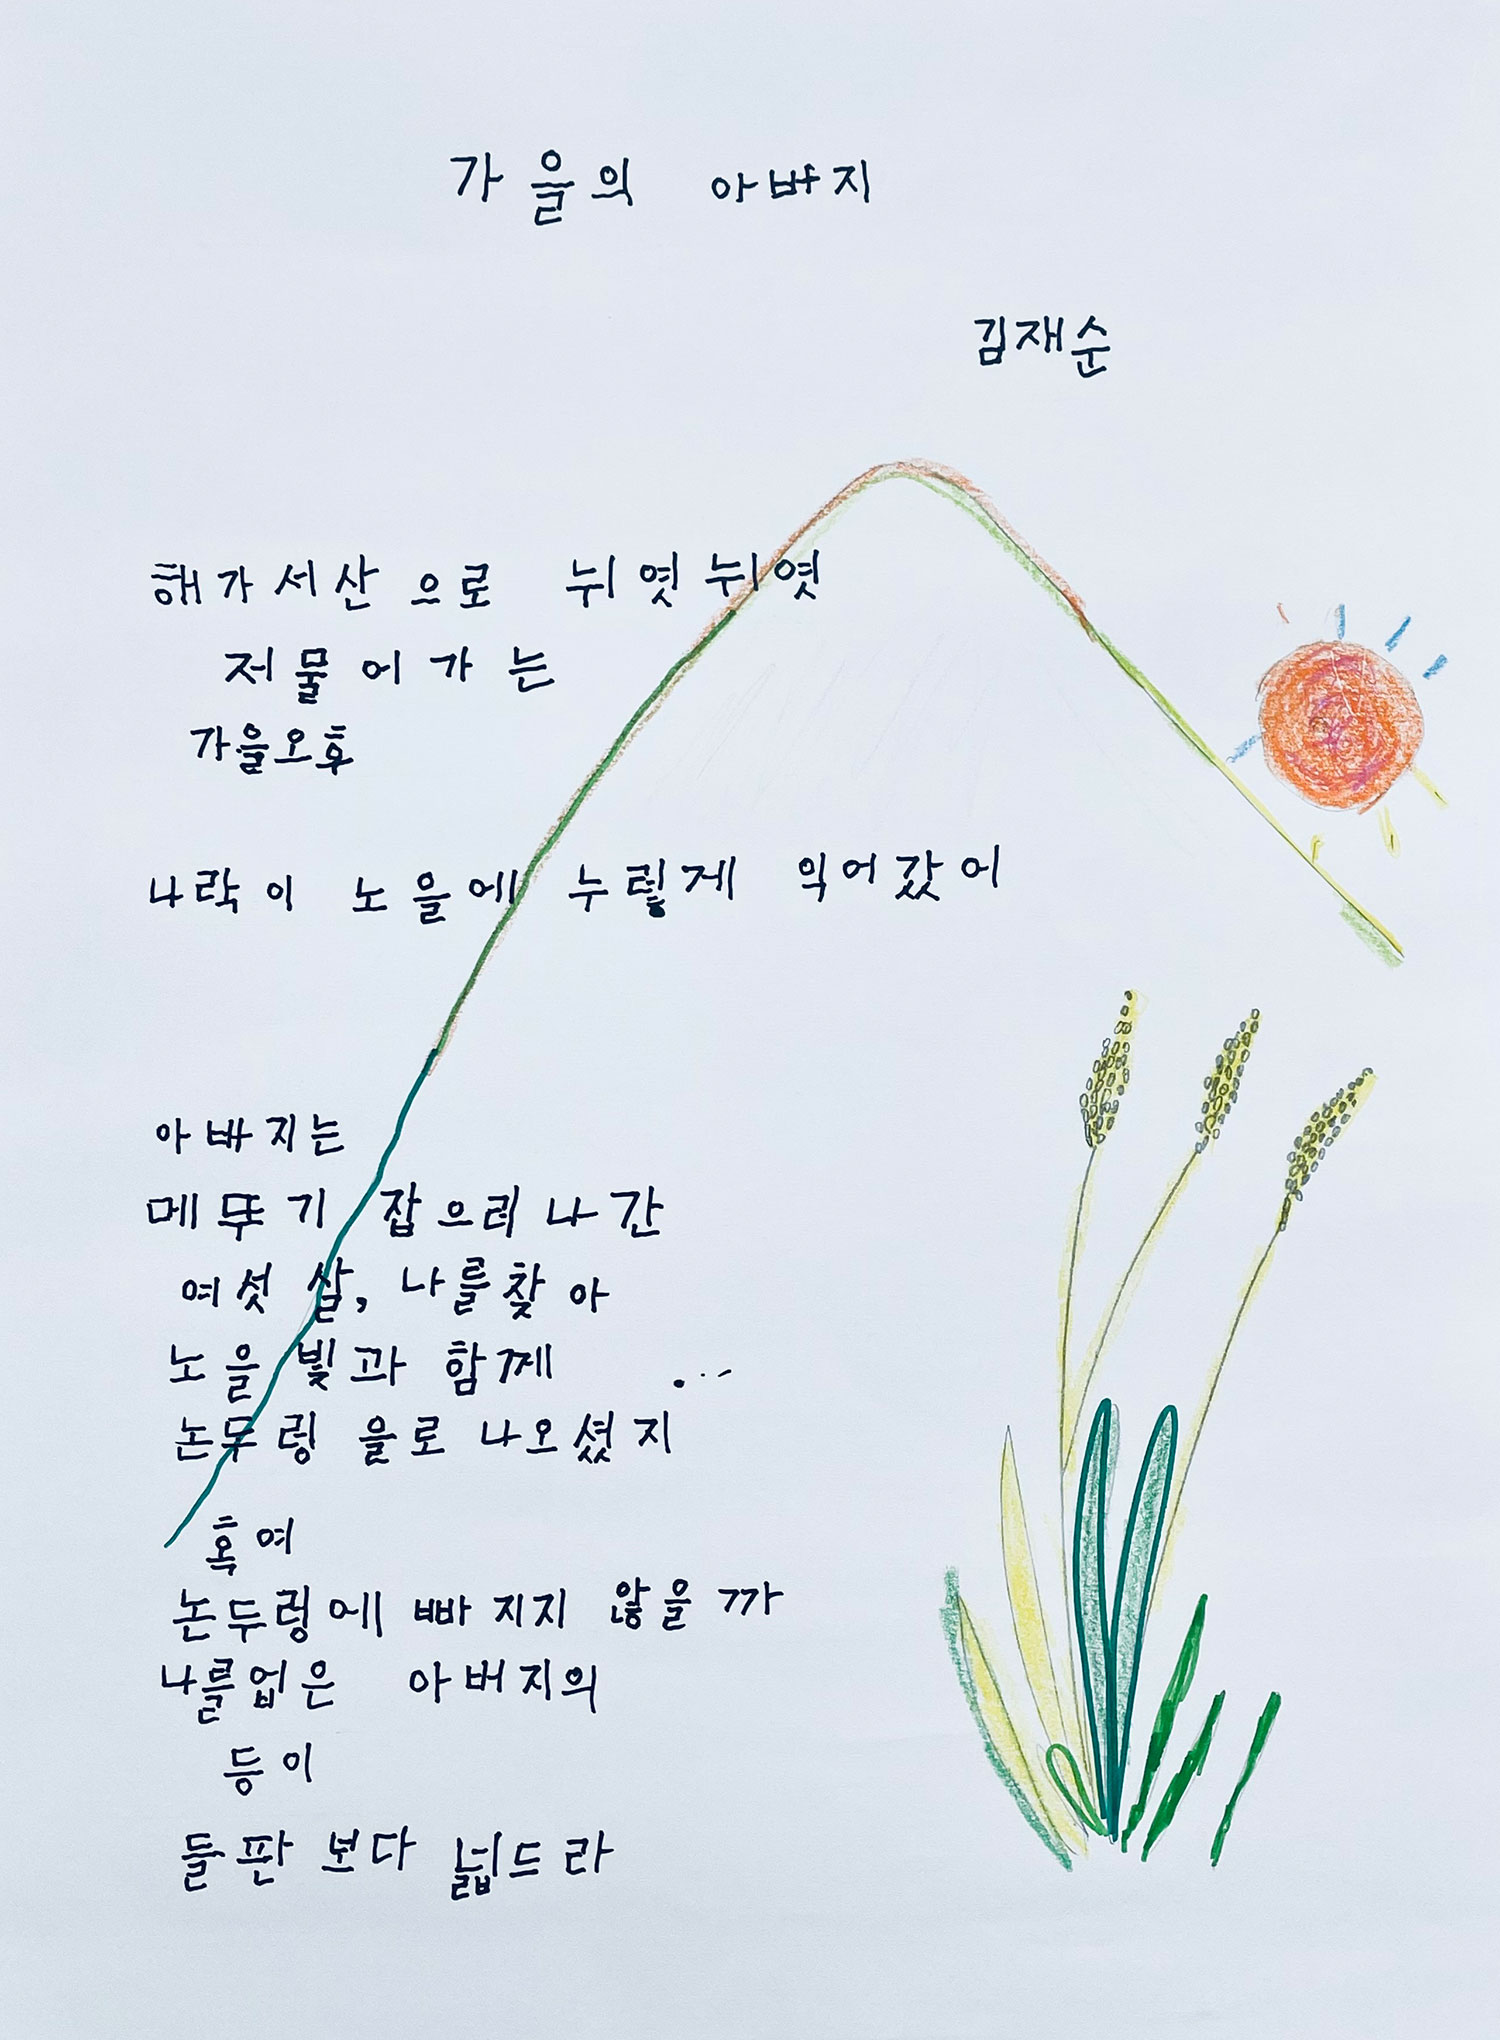 가을의 아버지
김재순
해가 서산으로 뉘엿뉘엿
저물어가는
가을오후
나락이 노을에 누렇게 익어갔어
아버지는
메뚜기 잡으러 나간
여섯 살, 나를 찾아
노을 빛과 함께
논두렁 을로 나오셨지
혹여
논두렁에 빠지지 않을까
나를 업은 아버지의
등이
들판 보다 넓드라